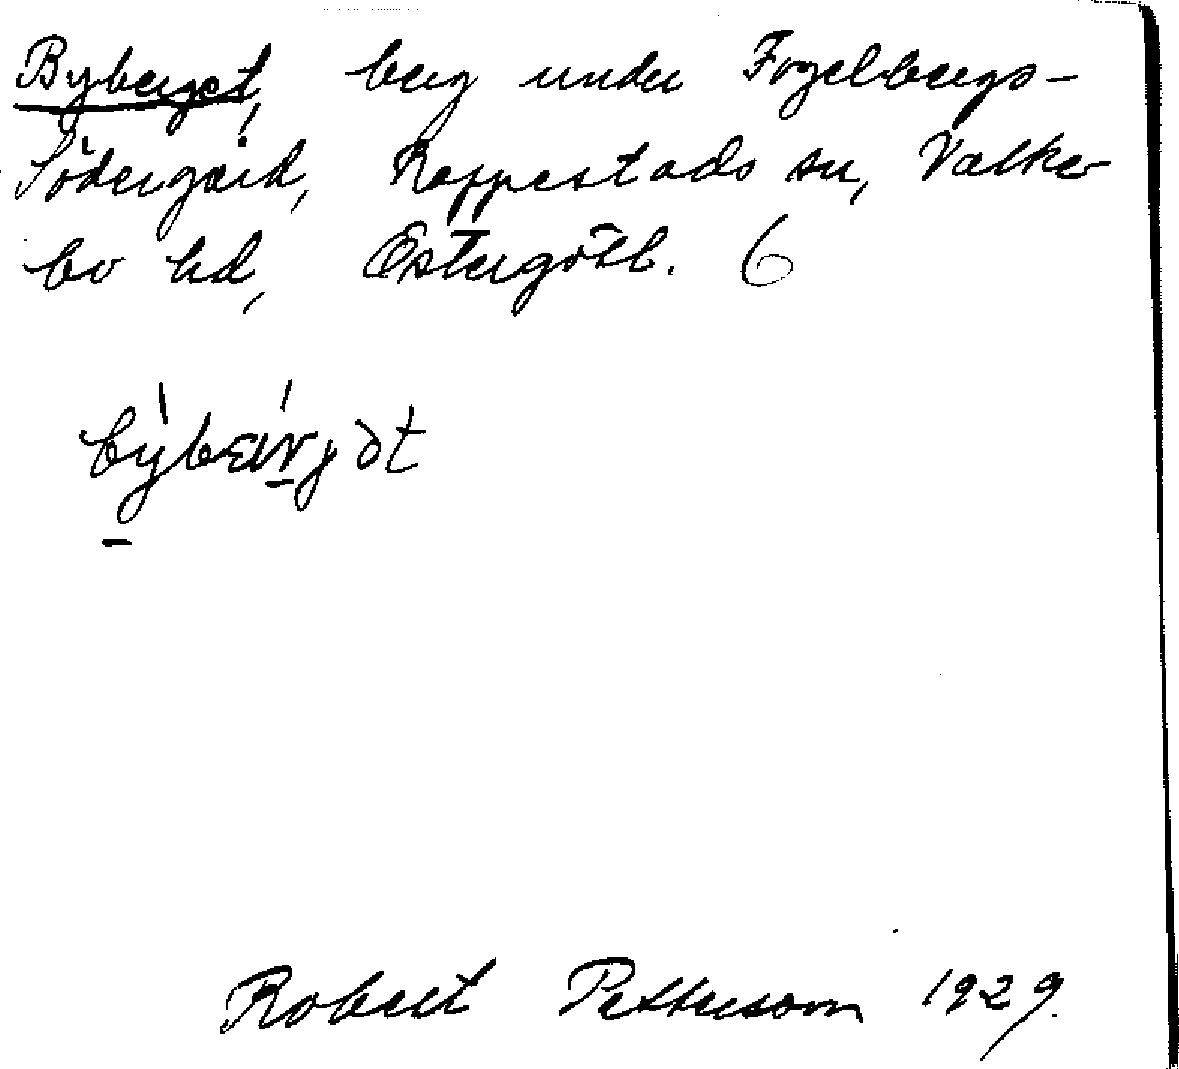 Byberget, berg under Fogelbergs-
Södergård, Rappestads sn, Valke-
bo hd, Östergötl. 6
Robert Pettersson 1929.